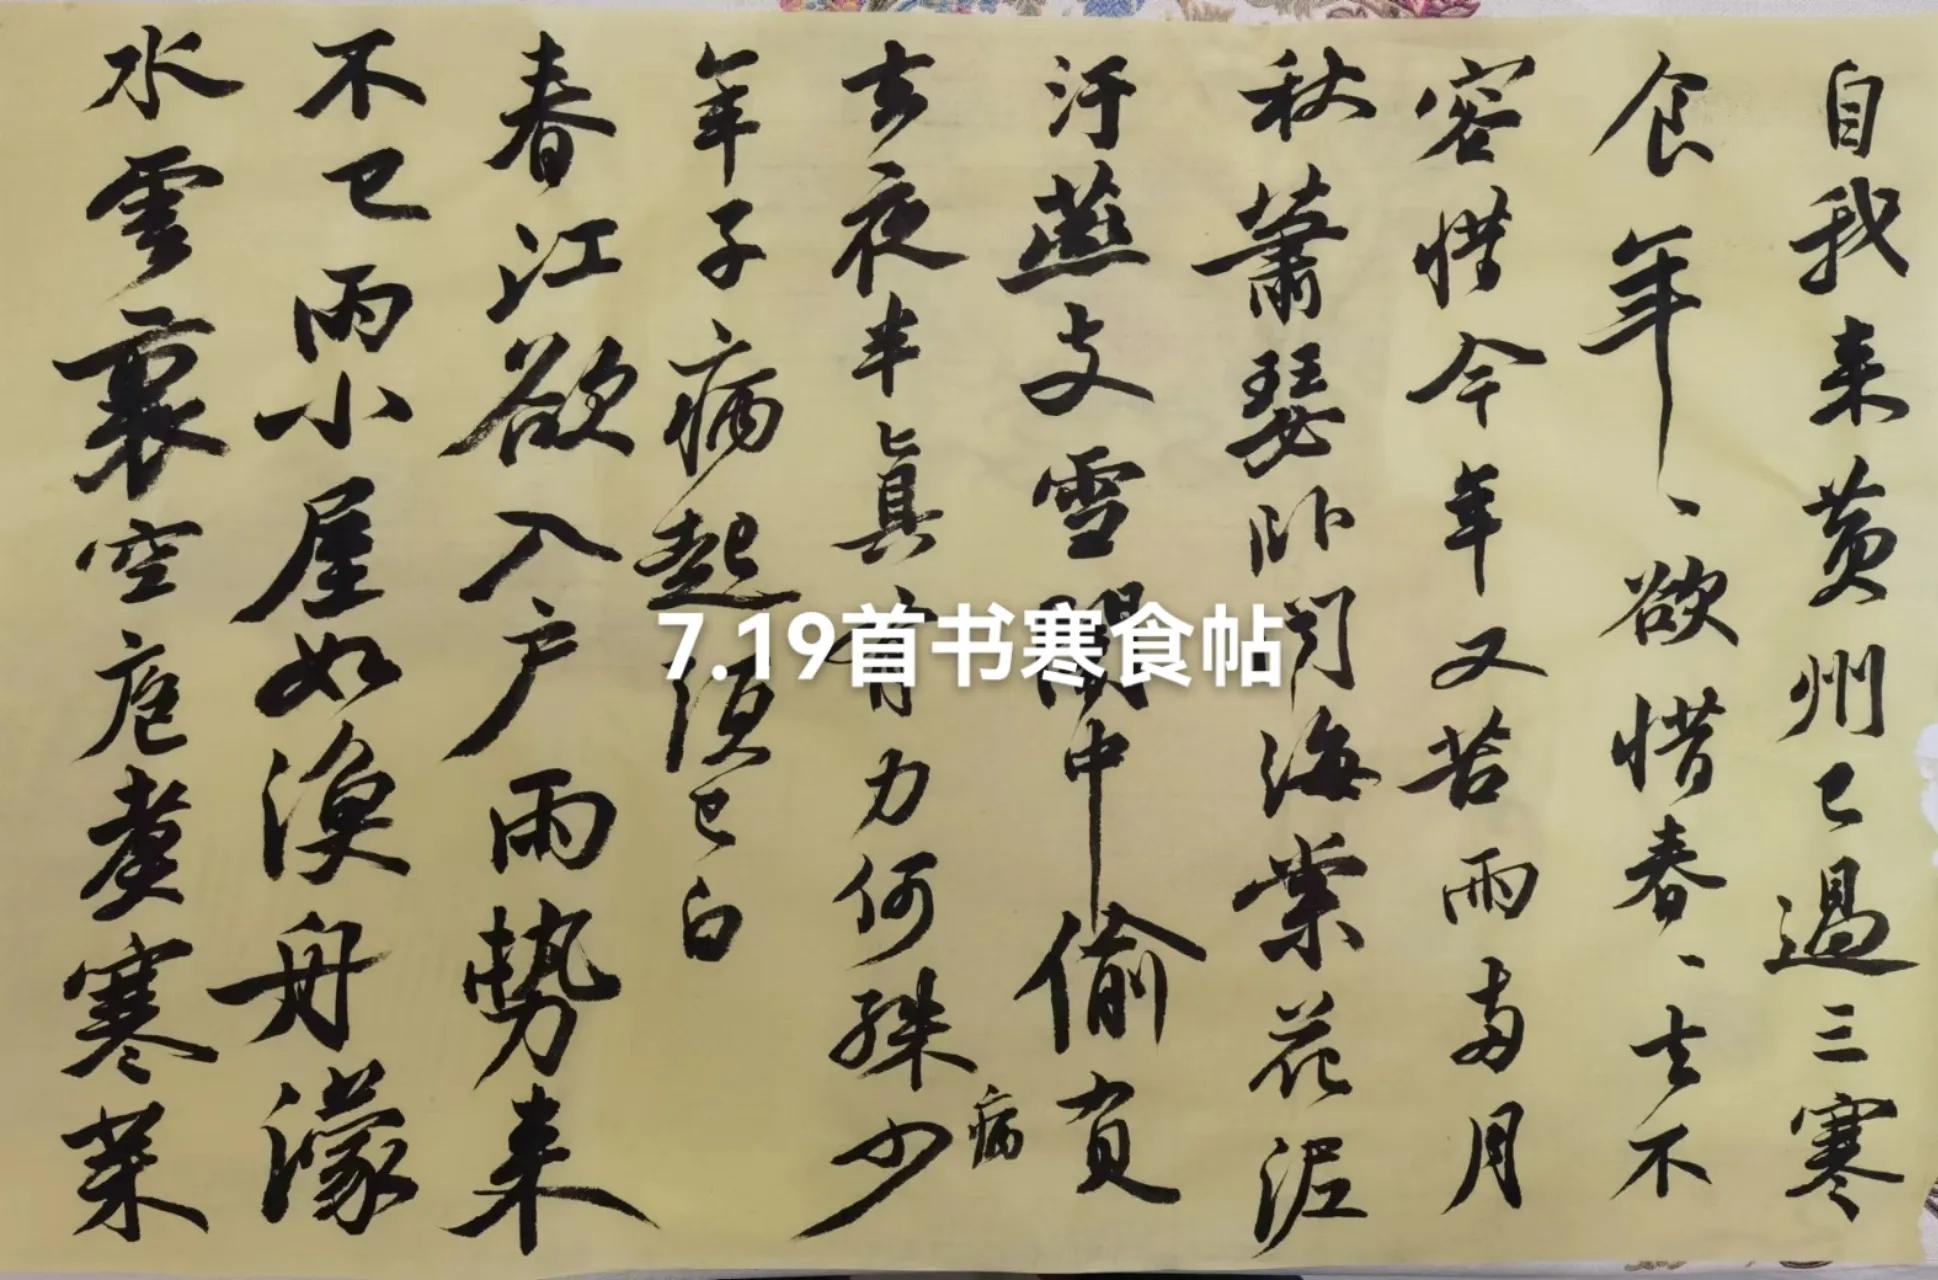 自我来黄州已過三寒
食年、欲惜春、去不
容惜今年又苦雨两月
秋蕭瑟卧聞海棠花泥
汙燕支雪闇中偷負
去夜半真有力何殊少
病
年子病起須已白
春江欲入户雨勢来
不已雨小屋如漁舟濛
水雲裏空庖煮寒菜
7.19首书寒食帖